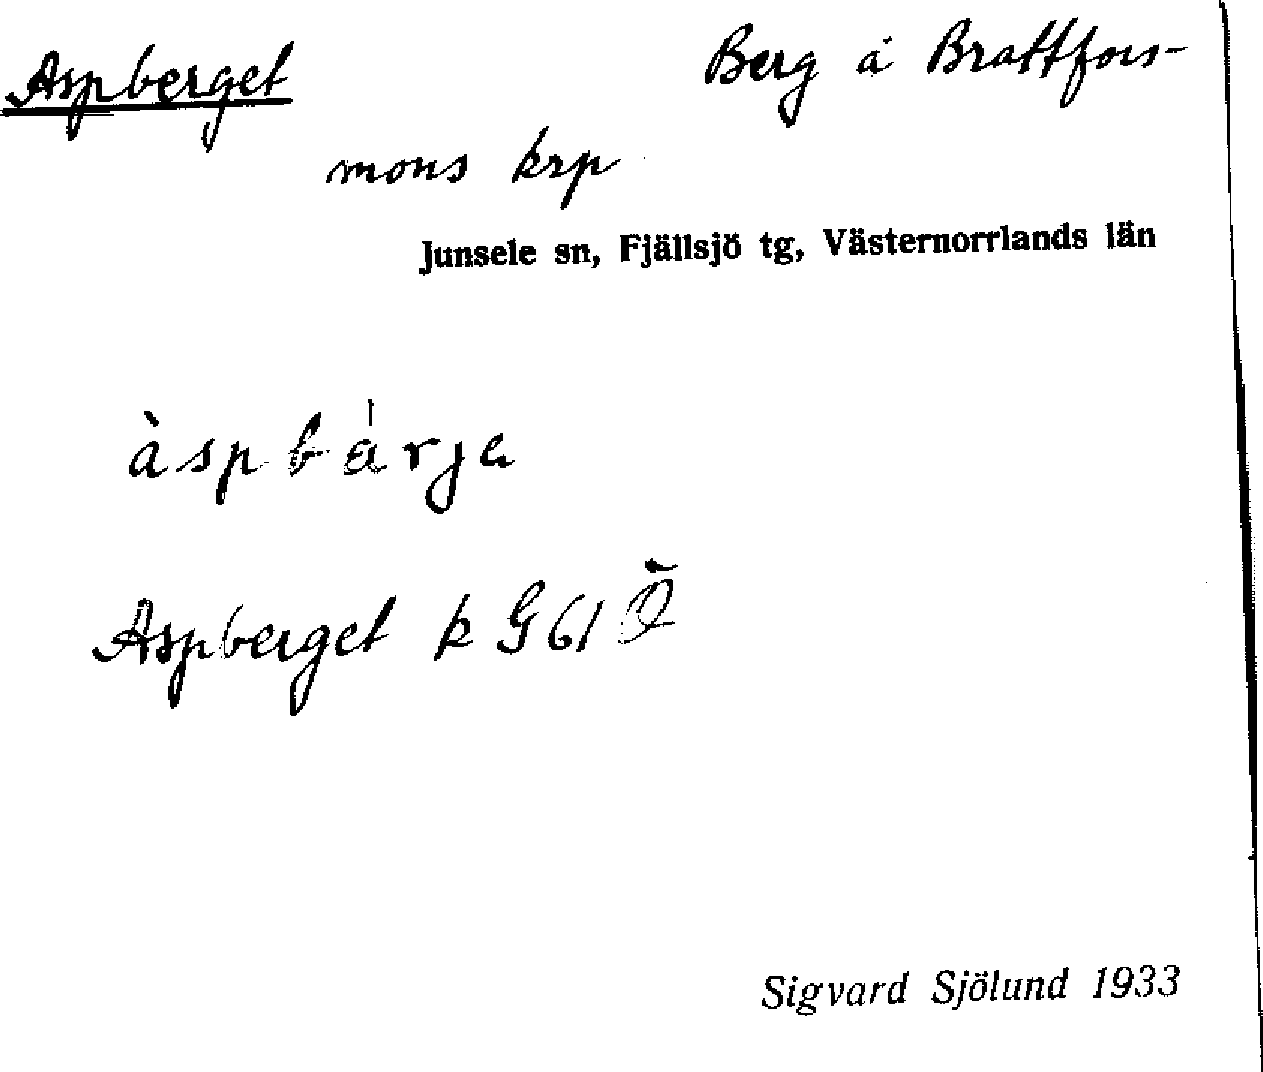 Aspberget Berg å Brattfors-
mons krp
Junsele sn, Fjällsjö tg, Västernorrlands län
àspbárja
Aspberget k G61 Ö
Sigvard Sjölund 1933